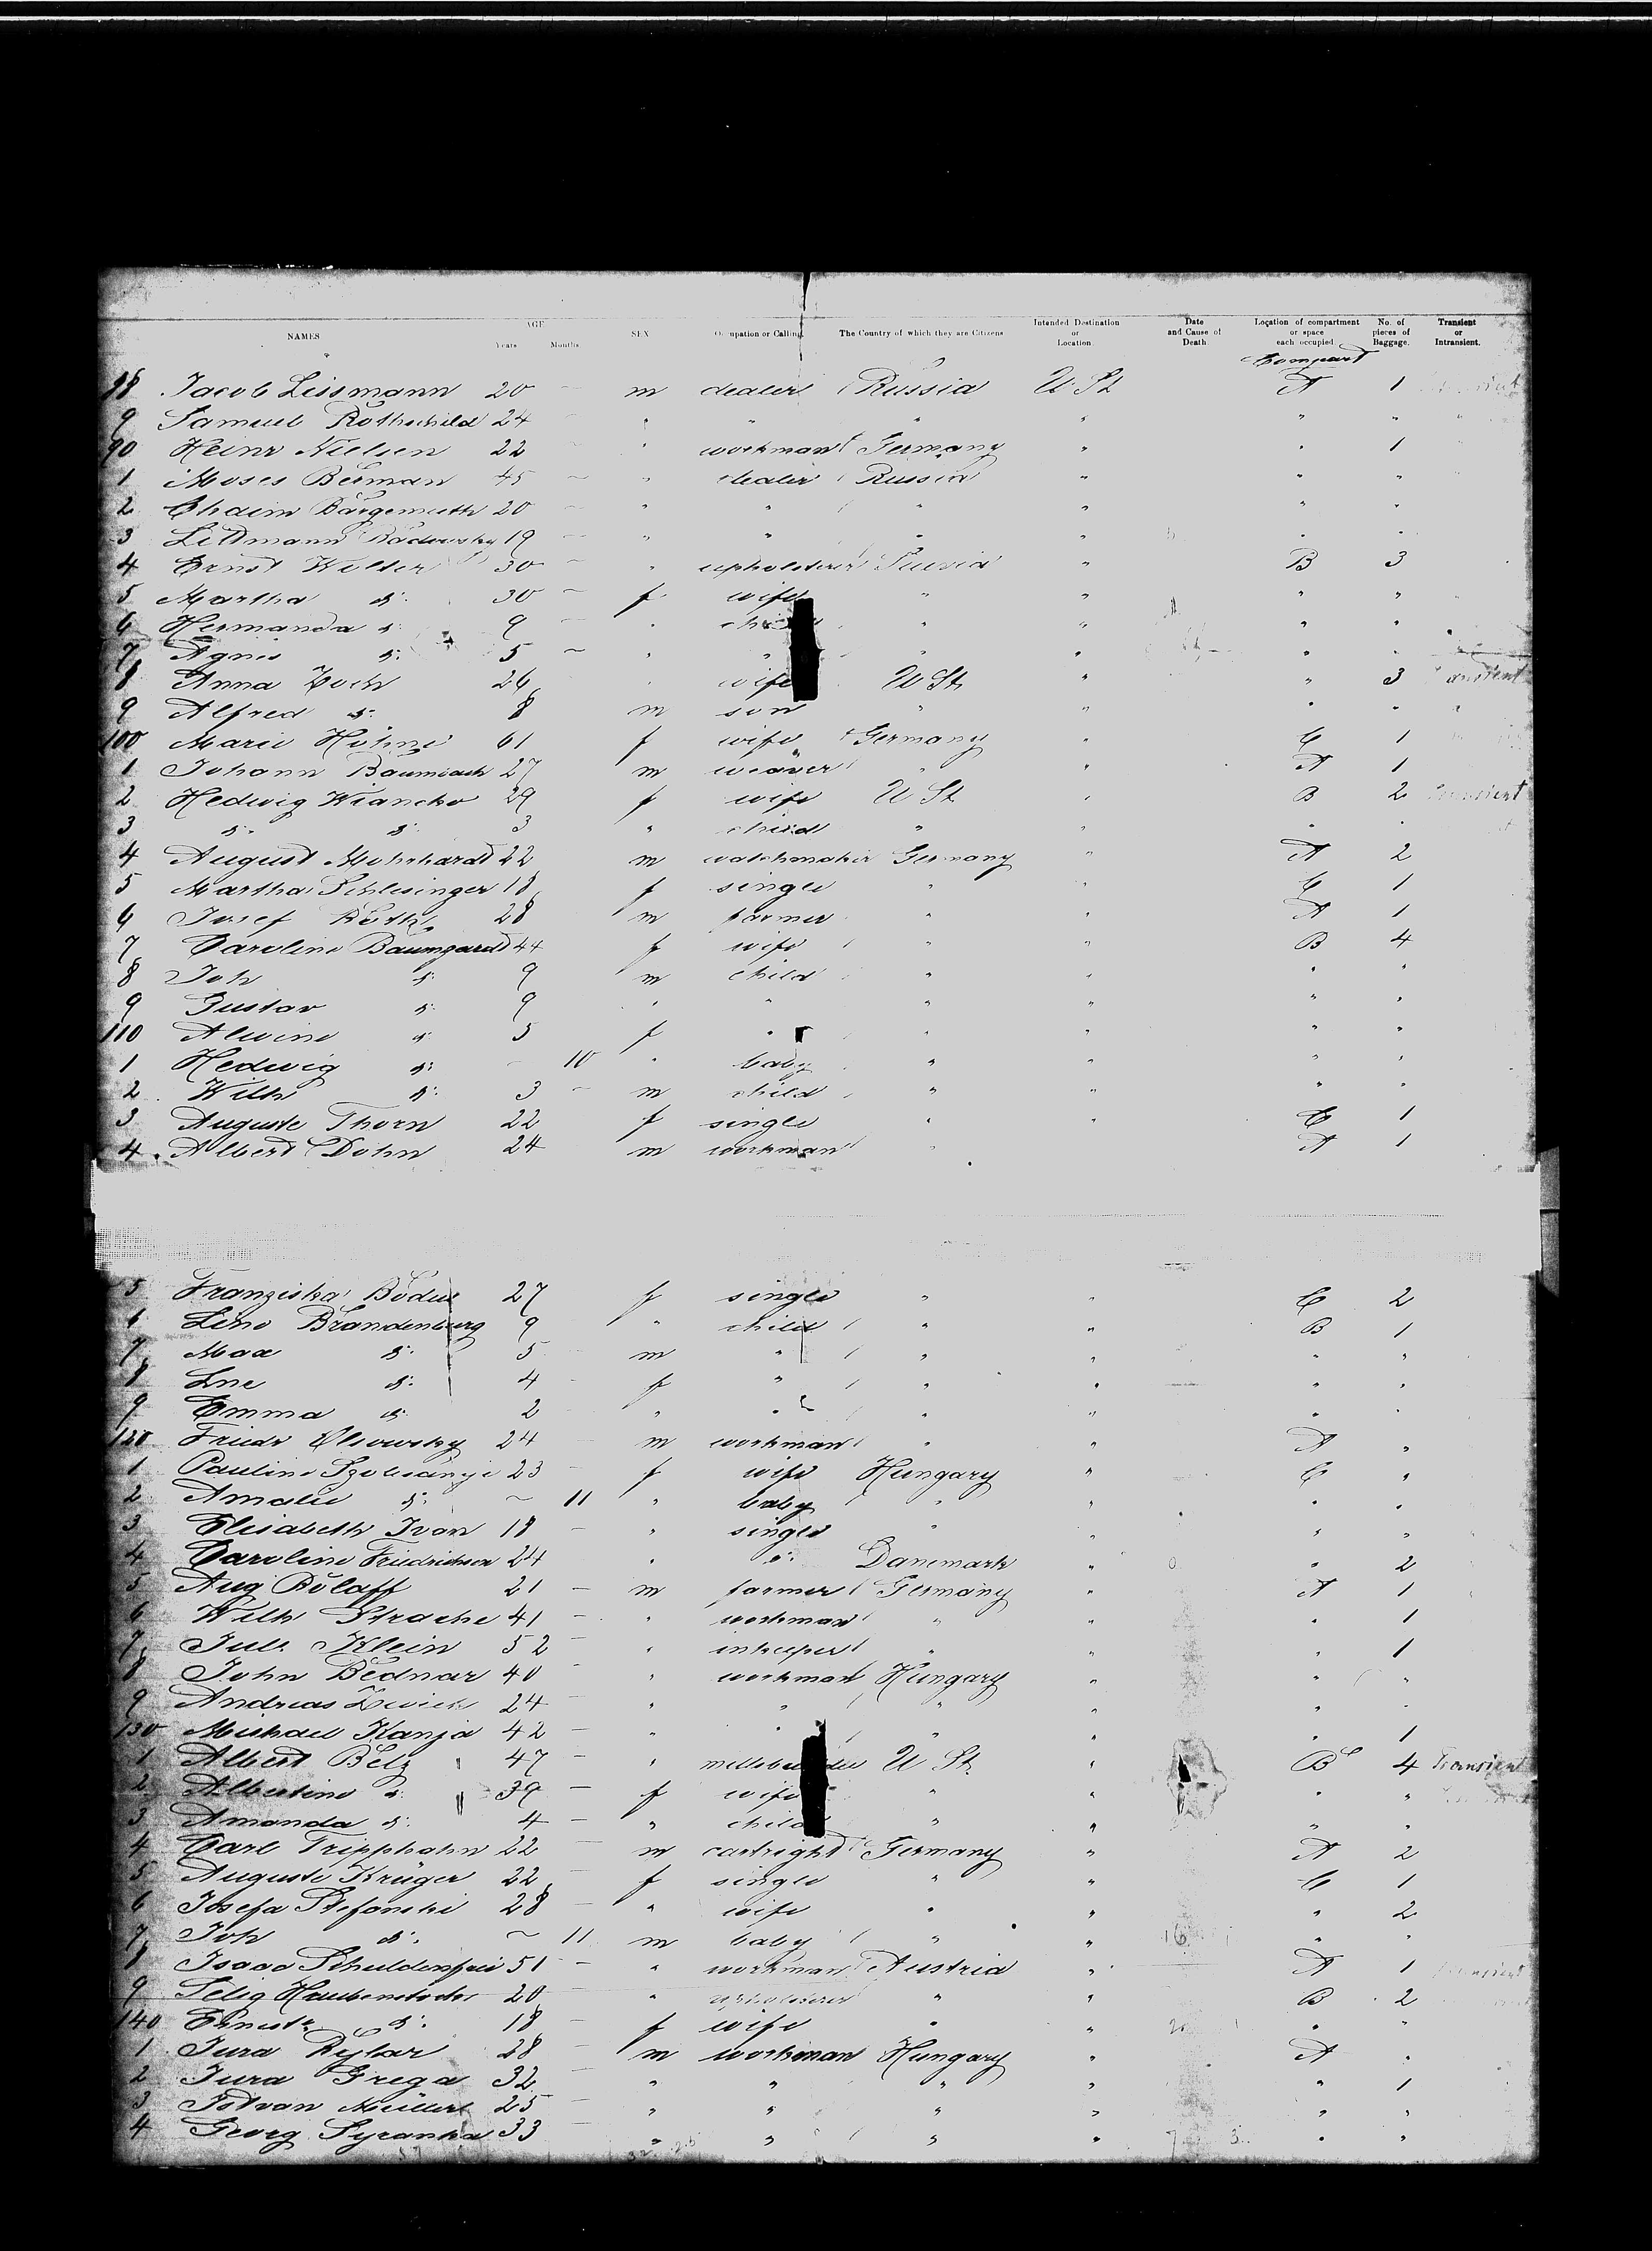 NAMES AGE Years Months SEX Occupation or Calling The Country of which they are Citizens Intended Destination or Location Date and Cause of Death Location of compartment or space each occupied No. of pieces of Baggage. Transient or Intransient.
Compart
88 Jacob Lissmann 20 – m dealer Russia U St A 1
9 Samuel Rothschild 24 – " " " " " "
90 Heinr Nielsen 22 – " workman Germany " " 1
1 Moses Berman 45 – " dealer Russia " " "
2 Chaim Bargemuth 20 – " " " " " "
3 Littmann Radowsky 19 – " " " " " "
4 Ernst Welter 30 – " upholsterer " B 3
5 Martha d: 30 – f wife " " " "
6 Hermanda d: 9 – " child " " " "
7 Agnes d: 5 – " " " " " "
8 Anna Zoch 26 " wife U St " " 3 Transient
9 Alfred d: 8 m son " " " " "
100 Marie Höhne 61 f wife Germany " C 1
1 Johann Baumbach 27 m weaver " " A 1
2 Hedwig Wiancko 29 f wife U St " B 2 Transient
3 d: d: 3 " child " " " "
4 August Mohrhardt 22 m watchmaker Germany " A 2
5 Martha Schlesinger 18 f single " " C 1
6 Josef Roth 28 m farmer " " A 1
7 Caroline Baumgardt 44 f wife " " B 4
8 Joh d: 9 m child " " " "
9 Gustav d: 9 " " " " " "
110 Alwine d: 5 f " " " " "
1 Hedwig d: – 10 " baby " " " "
2 Wilh d: 3 – m child " " " "
3 Auguste Thorn 22 f single " " C 1
4 Albert Dohn 24 m workman " A 1
5 Franziska 27 f single " " C 2
6 Line Brandenburg 9 " child " " B 1
7 Max d: 5 m " " " " "
8 d: 4 f " " " " "
9 Emma d: 2 " " " " " "
120 Friedr Olsowsky 24 m workman " " A "
1 Pauline 23 – f wife Hungary " C "
2 Amalie d: – 11 " baby " " " "
3 Elisabeth Ivan 18 – " single " " " "
4 Caroline Friedrichsen 24 " d: Danemark " " 2
5 Aug Rolaff 21 – m farmer Germany " A 1
6 Wilh Strache 41 – " workman " " " 1
7 Jul. Klein 52 – " inkeeper " " " 1
8 John Bednar 40 – " workman Hungary " " "
9 Andreas 24 – " " " " " "
130 Michael Kanja 42 – " " " " " 1
1 Albert Belz 47 – " U St " B 4 Transient
2 Albertine d: 39 – f wife " " " "
3 Amanda d: 4 – " child " " " "
4 Carl Tripphahn 22 – m cartright Germany " A 2
5 Auguste Krüger 22 – f single " " C 1
6 Josefa Stefanski 28 – " wife " " " 2
7 Joh d: – 11 m baby " " " "
8 Isaac Schuldenfrei 51 – " workman Austria " A 1
9 Selig 20 – " upholsterer " " B 2
140 Ernestr d: 18 – f wife " " " "
1 Jura Rybar 28 – m workman Hungary " A "
2 Jura Grega 32 " " " " " 1
3 Istvan Müller 25 – " " " " " "
4 Georg Syranka 33 " " " " " "